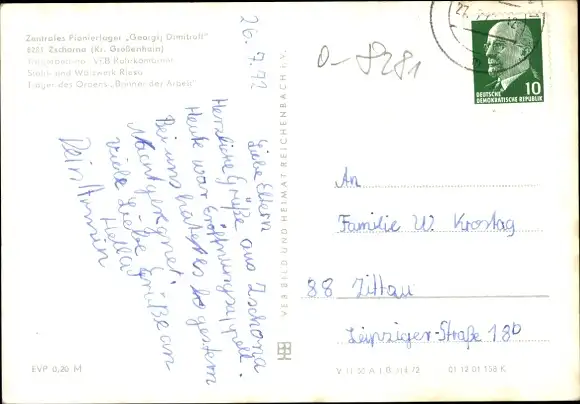 Zentrales Pionierlager „Georgij Dimitroff"
8281 Zschorna (Kr. Großenhain)
Trägerbetrieb: VEB Rohrkombinat
Stahl- und Walzwerk Riesa
Träger des Ordens „Banner der Arbeit"
26.7.72
Liebe Eltern
Herzliche Grüße aus Zschorna
Heute war Eröffnungsappell.
Bei uns hat es bis gestern
Nacht geregnet.
Viele Liebe Grüße an
Hella
Dein Armin
VEB BILD UND HEIMAT REICHENBACH i. V.
O-8281
27. 7.72
DEUTSCHE
DEMOKRATISCHE REPUBLIK
10
An
Familie W. Krostag
88 Zittau
Leipziger-Straße 18b
EVP 0,20 M
01 12 01 158 K